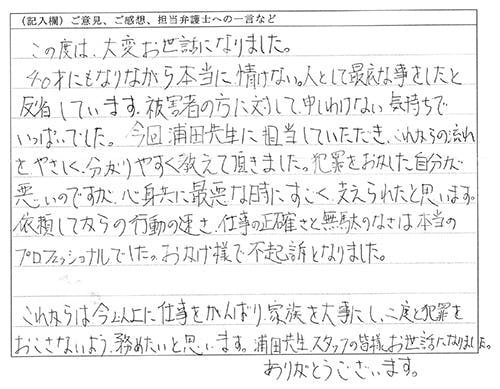 (記入欄)ご意見、ご感想、担当弁護士への一言など
この度は、大変お世話になりました。
40才にもなりながら本当に、情けない。人として最底な事をしたと
反省しています。被害者の方に対して、申しわけない気持ちで
いっぱいでした。今回浦田先生に担当していただき、これからの流れ
をやさしく、分かりやすく教えて頂きました。犯罪をおかした自分が
悪いのですが、心身共に最悪な時にすごく、支えられたと思います。
依頼してからの行動の速さ、仕事の正確さと無駄のなさは本当の
プロフェッショナルでした。おかげ様で不起訴となりました。
これからは今以上に仕事をがんばり、家族を大事にし、二度と犯罪を
おこさないよう、務めたいと思います。浦田先生、スタッフの皆様、お世話になりました。
ありがとうございます。